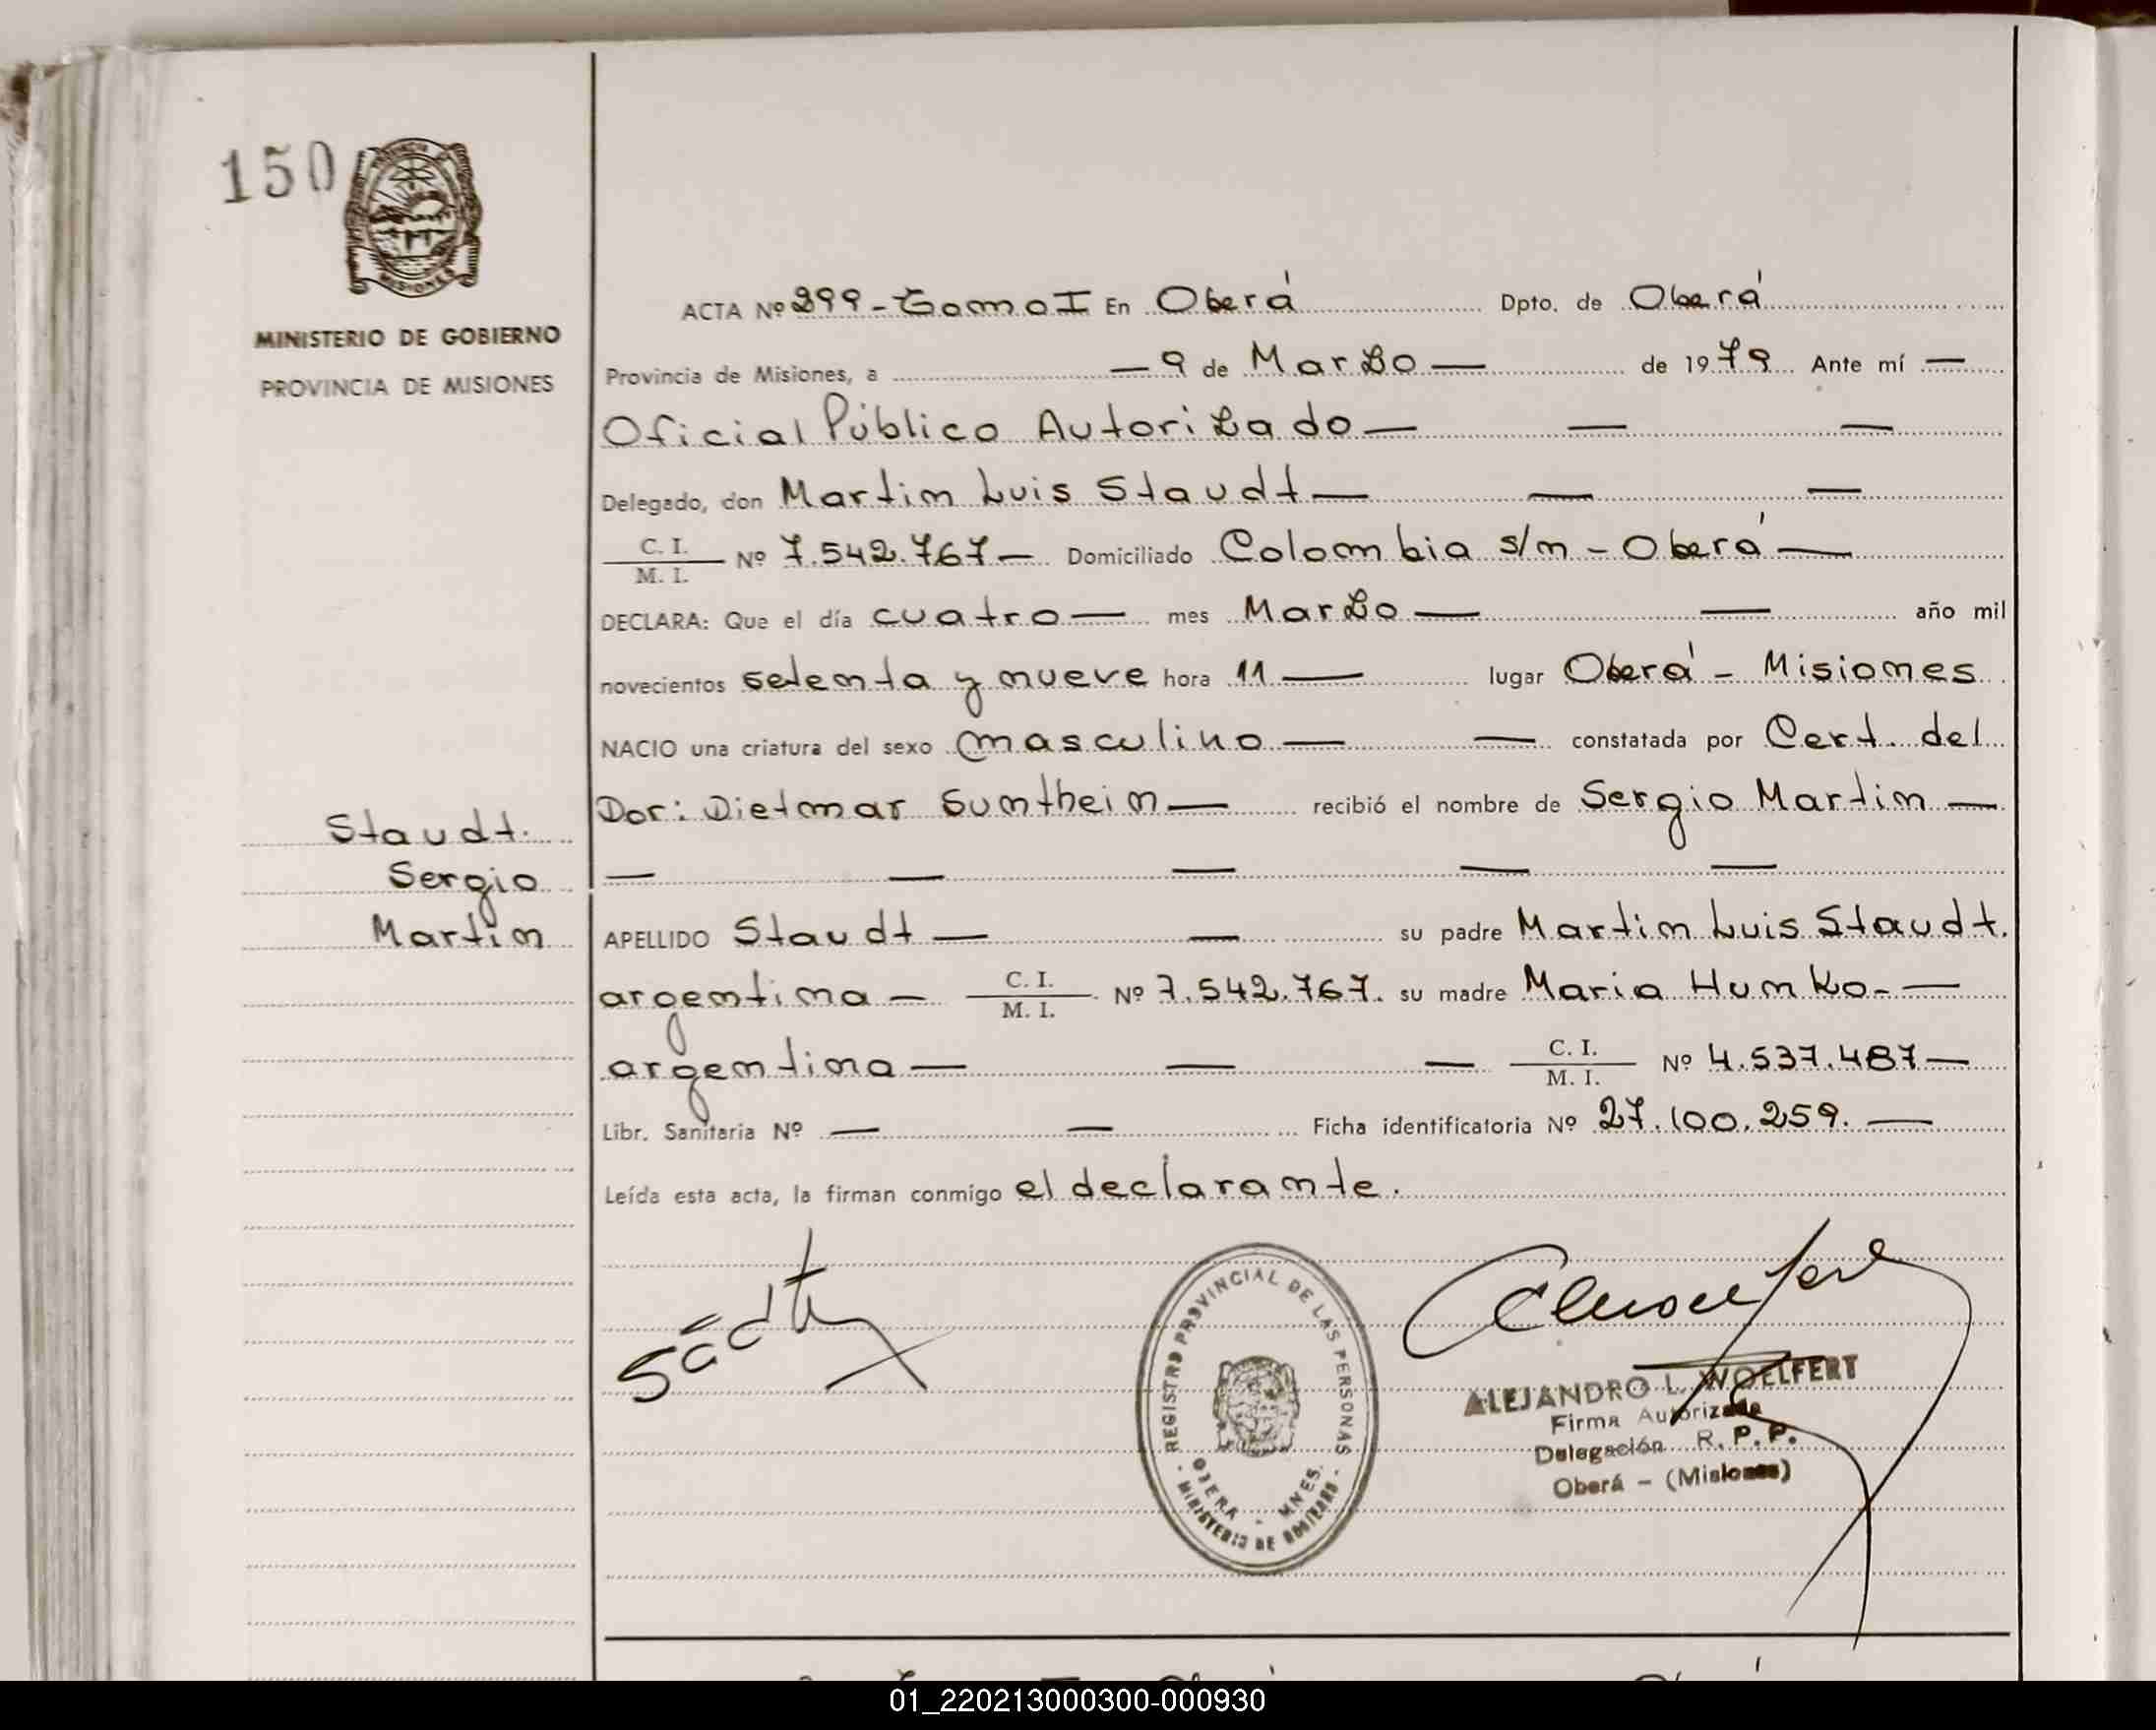 150
PROVINCIA DE
MISIONES
MINISTERIO DE GOBIERNO
PROVINCIA DE MISIONES
ACTA Nº 299 - Tomo I En Oberá Dpto. de Oberá
Provincia de Misiones, a — 9 de Marzo — de 1979 Ante mí —
Oficial Público Autorizado — — —
Delegado, don Martin Luis Staudt — — —
C. I.
M. I. Nº 7.542.767 — Domiciliado Colombia s/n - Oberá —
DECLARA: Que el día cuatro — mes Marzo — — año mil
novecientos setenta y nueve hora 11 — lugar Oberá - Misiones
NACIO una criatura del sexo masculino — — constatada por Cert. del
Dor: Dietmar Suntheim — recibió el nombre de Sergio Martin —
— — — — —
Staudt.
Sergio
Martin
APELLIDO Staudt — — su padre Martin Luis Staudt.
argentina — C. I. M. I. Nº 7.542.767. su madre Maria Hunko. —
argentina — — — C. I. M. I. Nº 4.537.487 —
Libr. Sanitaria Nº — — Ficha identificatoria Nº 27.100.259. —
Leída esta acta, la firman conmigo el declarante.
REGISTRO PROVINCIAL DE LAS PERSONAS
OBERA - MNES.
MINISTERIO DE GOBIERNO
ALEJANDRO L. WOELFERT
Firma Autorizada
Delegación R. P. P.
Oberá - (Misiones)
01_220213000300-000930